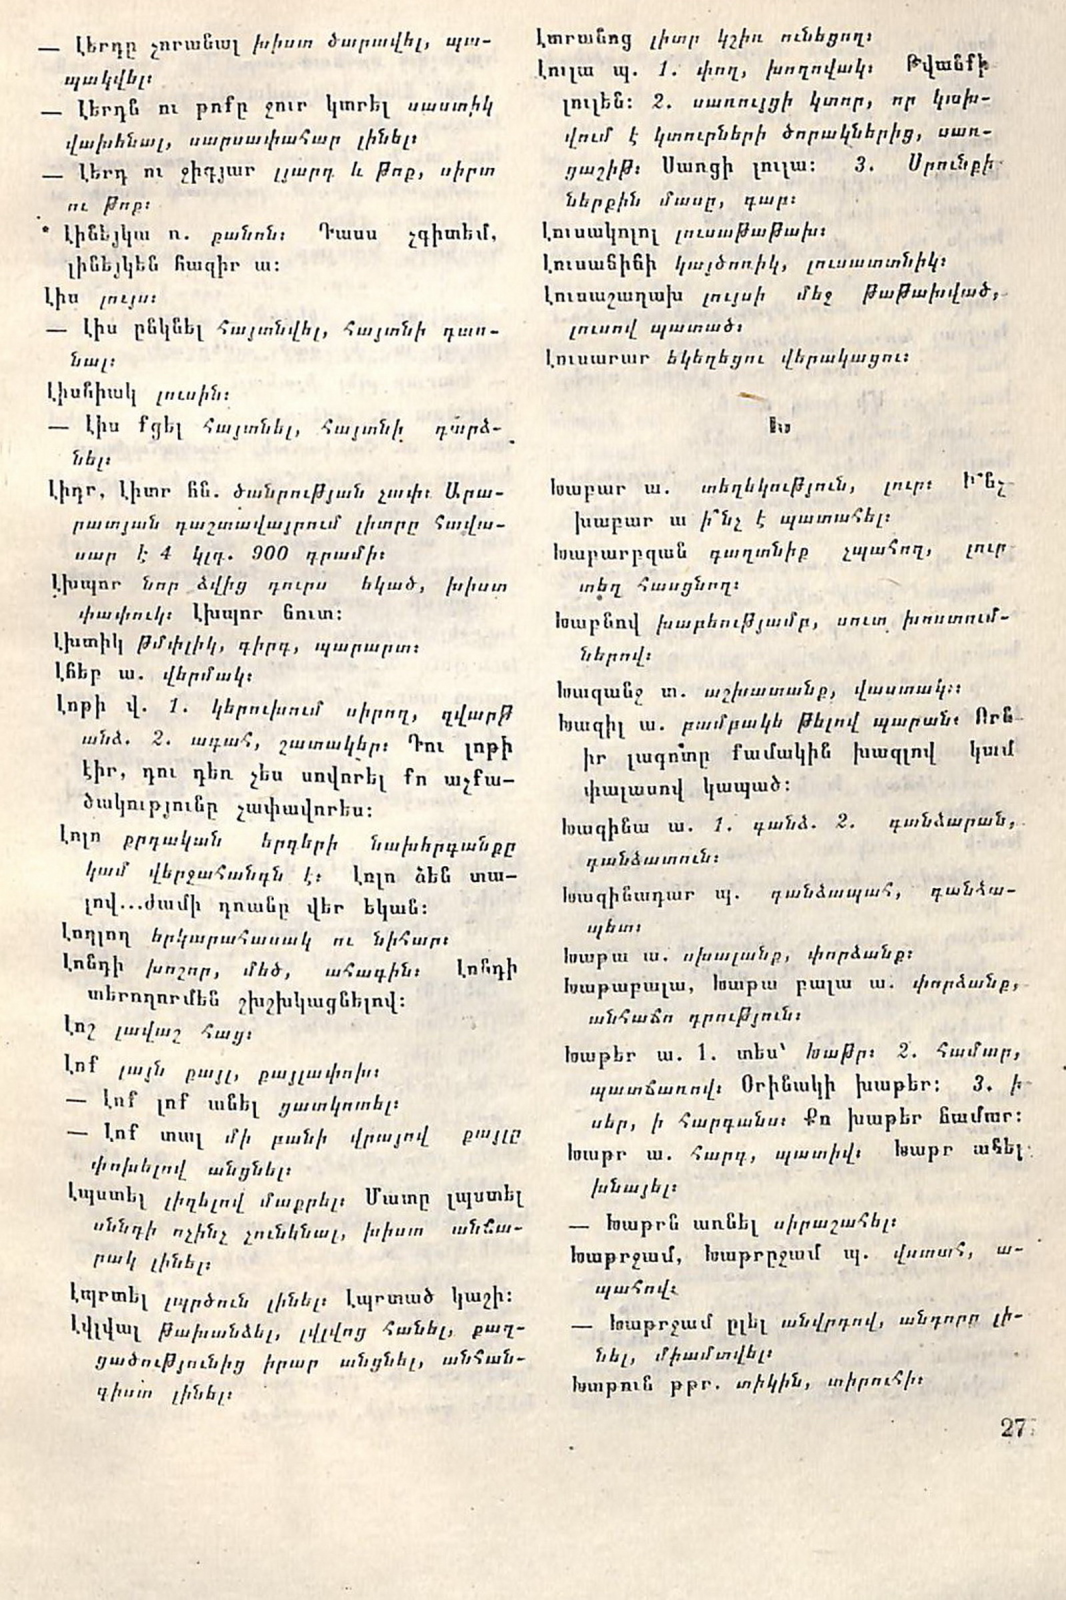 — Լերդը չորանալ խիստ ծարավել, պա-
պակվել։
— Լերդն ու թոքը ջուր կտրել սաստիկ
վախենալ, սարսափահար լինել։
— Լերդ ու ջիգյար լյարդ և թոք, սիրտ
ու թոք։
Լինեյկա ռ. քանոն։ Դասս չգիտեմ,
լինեյկեն հազիր ա։
Լիս լույս։
— Լիս ընկնել հայտնվել, հայտնի դառ-
նալ։
Լիսնիակ լուսին։
— Լիս քցել հայտնել, հայտնի դարձ-
նել։
Լիդր, Լիտր հն. ծանրության չափ։ Արա-
րատյան դաշտավայրում լիտրը հավա-
սար է 4 կլգ. 900 գրամի։
Լխպոր նոր ձվից դուրս եկած, խիստ
փափուկ։ Լխպոր ճուտ։
Լխտիկ թմփլիկ, գիրգ, պարարտ։
Լհեր ա. վերմակ։
Լոթի վ. 1. կերուխում սիրող, զվարթ
անձ. 2. ագահ, շատակեր։ Դու լոթի
էիր, դու դեռ չես սովորել քո աչքա-
ծակությունը չափավորես։
Լոլո քրդական երգերի նախերգանքը
կամ վերջահանգն է։ Լոլո ձեն տա-
լով...ժամի դռանը վեր եկան։
Լողլող երկարահասակ ու նիհար։
Լոնդի խոշոր, մեծ, ահագին։ Լոնդի
տերողորմեն շխշխկացնելով։
Լոշ լավաշ հաց։
Լոք լայն քայլ, քայլափոխ։
— Լոք լոք անել ցատկոտել։
— Լոք տալ մի բանի վրայով քայլը
փոխելով անցնել։
Լպստել լիզելով մաքրել։ Մատը լպստել
սննդի ոչինչ չունկնալ, խիստ անճա-
րակ լինել։
Լպրտել լպրծուն լինել։ Լպրտած կաշի։
Լվլվալ թախանձել, լվլվոց հանել, քաղ-
ցածությունից իրար անցնել, անհան-
գիստ լինել։
Լտրանոց լիտր կշիռ ունեցող։
Լուլա պ. 1. փող, խողովակ։ Թվանքի
լուլեն։ 2. սառույցի կտոր, որ կախ-
վում է կտուրների ծորակներից, սառ-
ցաշիթ։ Սառցի լուլա։ 3. Սրունքի
ներքին մասը, գար։
Լուսակոլոլ լուսաթաթախ։
Լուսանինի կայծոռիկ, լուսատտնիկ։
Լուսաշաղախ լույսի մեջ թաթախված,
լուսով պատած։
Լուսարար եկեղեցու վերակացու։
Խ
Խաբար ա. տեղեկություն, լուր։ Ի՞նչ
խաբար ա ի՞նչ է պատահել։
Խաբարբզան գաղտնիք չպահող, լուր
տեղ հասցնող։
Խաբնով խաբեությամբ, սուտ խոստում-
ներով։
Խազանջ տ. աշխատանք, վաստակ։
Խազիլ ա. բամբակե թելով պարան։ Որն
իր լագո՞տը քամակին խազլով կամ
փալասով կապած։
Խազինա ա. 1. գանձ. 2. գանձարան,
գանձատուն։
Խազինադար պ. գանձապահ, գանձա-
պետ։
Խաթա ա. սխալանք, փորձանք։
Խաթաբալա, Խաթա բալա ա. փորձանք,
անհաճո դրություն։
Խաթեր ա. 1. տես՝ Խաթր։ 2. համար,
պատճառով։ Օրինակի խաթեր։ 3. ի
սեր, ի հարգանս։ Քո խաթեր համար։
Խաթր ա. հարգ, պատիվ։ Խաթր անել
խնայել։
— Խաթրն առնել սիրաշահել։
Խաթրջամ, Խաթրըջամ պ. վստահ, ա-
պահով։
— Խաթրջամ ըլել անվրդով, անդորր լի-
նել, միամտվել։
Խաթուն թթր. տիկին, տիրուհի։
27